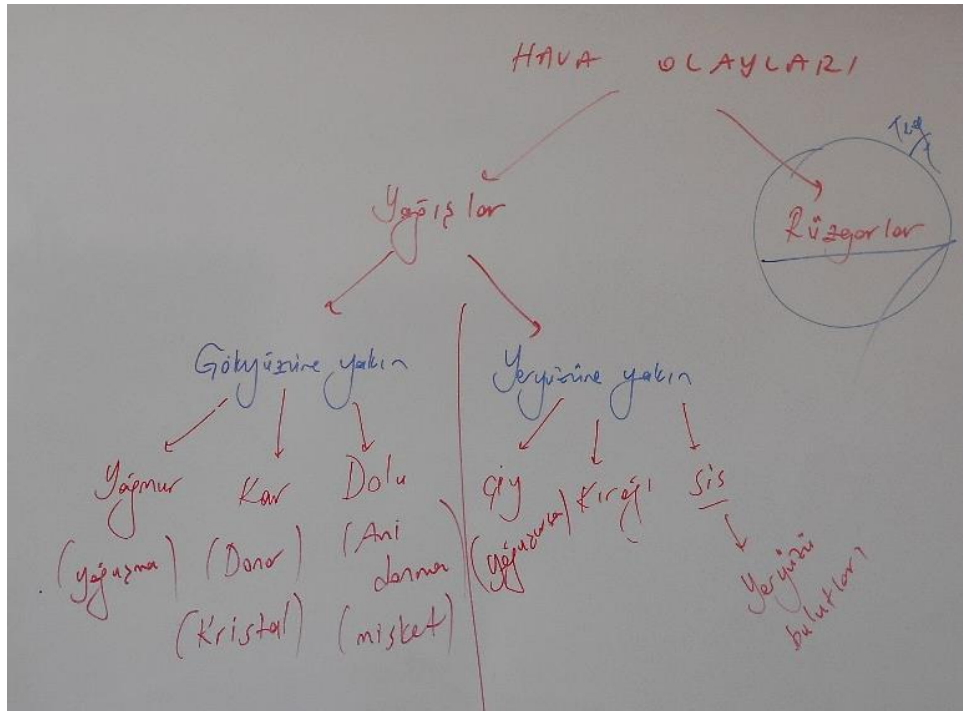 HAVA OLAYLARI
Yağışlar
Rüzgarlar
Gökyüzüne yakın
Yeryüzüne yakın
Yağmur
(yoğuşma)
Kar
(Donar)
(Kristal)
Dolu
(Ani
donma)
(misket)
Çiy
(yoğuşursa)
Kırağı
Sis
Yeryüzü
bulutları